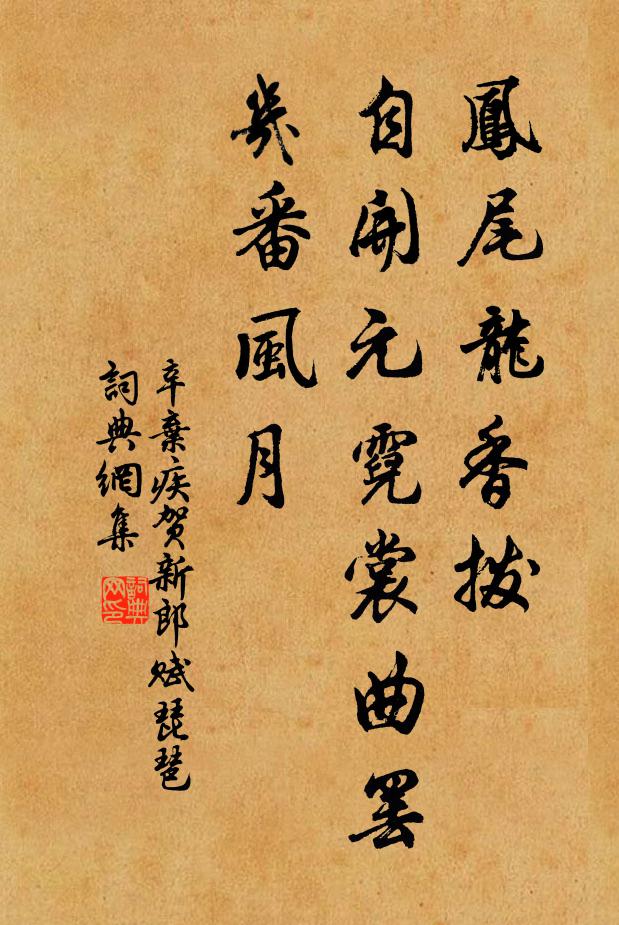 鳳尾龍香撥
自開元霓裳曲罷
幾番風月
辛棄疾賀新郎賦琵琶
詞典網集
詞典网印